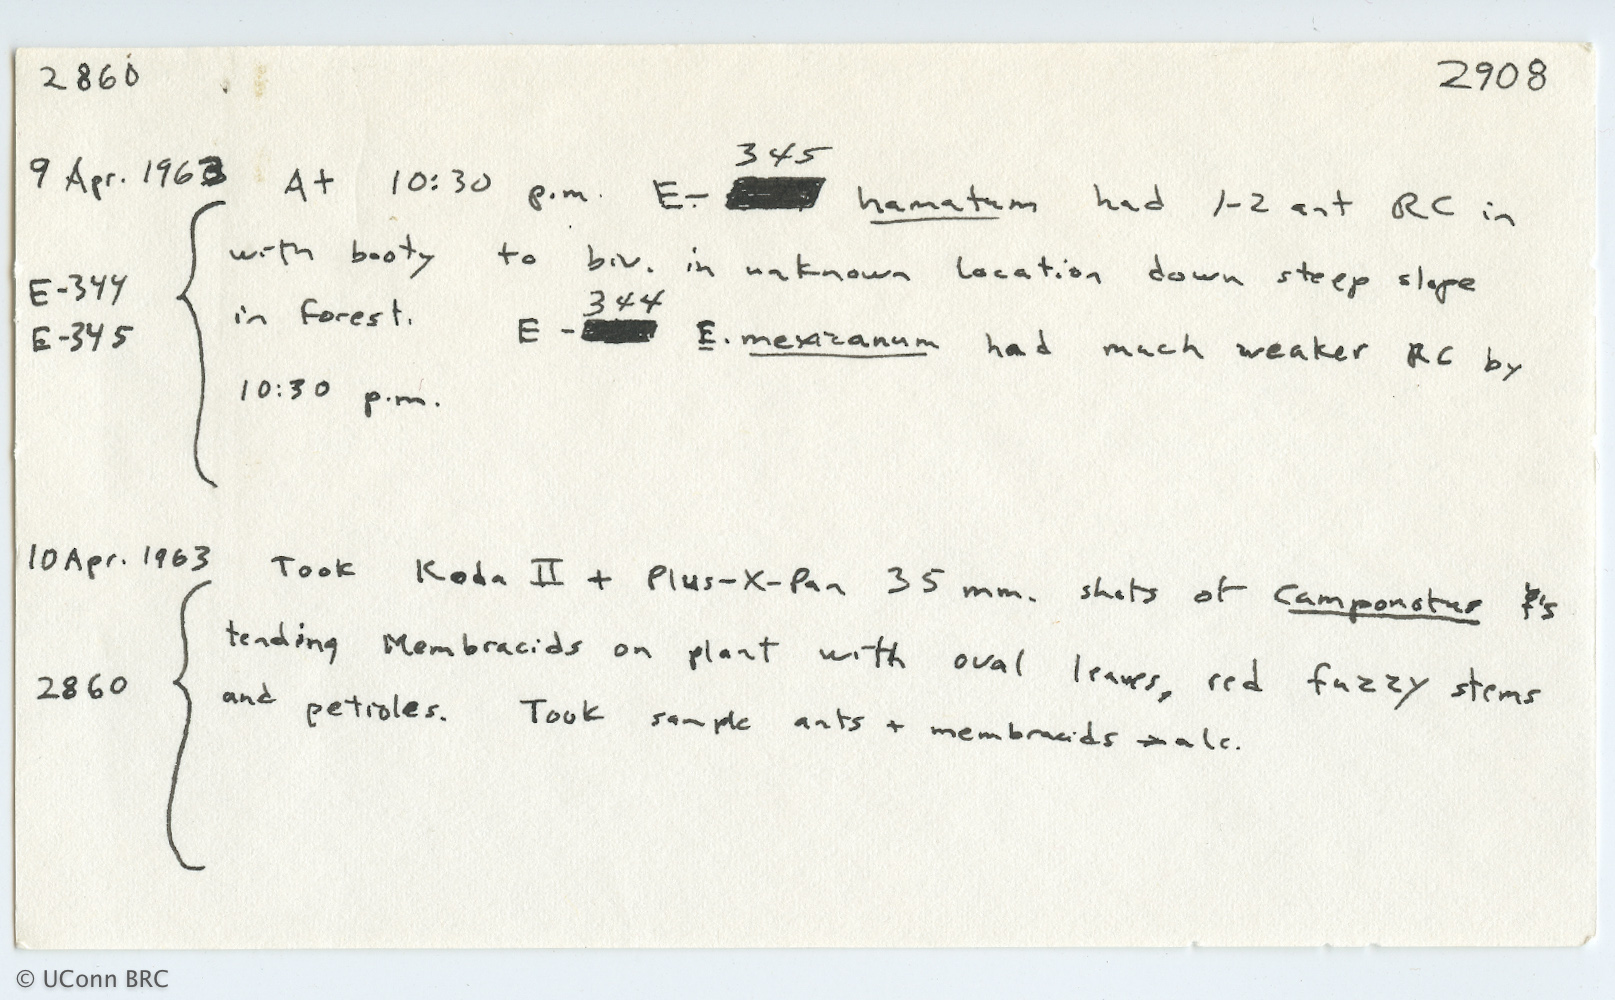 2860 2908
9 Apr. 1963 At 10:30 p.m. E- 345 hamatum had 1-2 ant RC in
with booty to biv. in unknown location down steep slope
E-344
in forest. E - 344 E. mexicanum had much weaker RC by
E-345
10:30 p.m.
10 Apr. 1963 Took Koda II + Plus-X-Pan 35 mm. shots of Camponotus
tending Membracids on plant with oval leaves, red fuzzy stems
2860
and petioles. Took sample ants + membracids → alc.
© UConn BRC